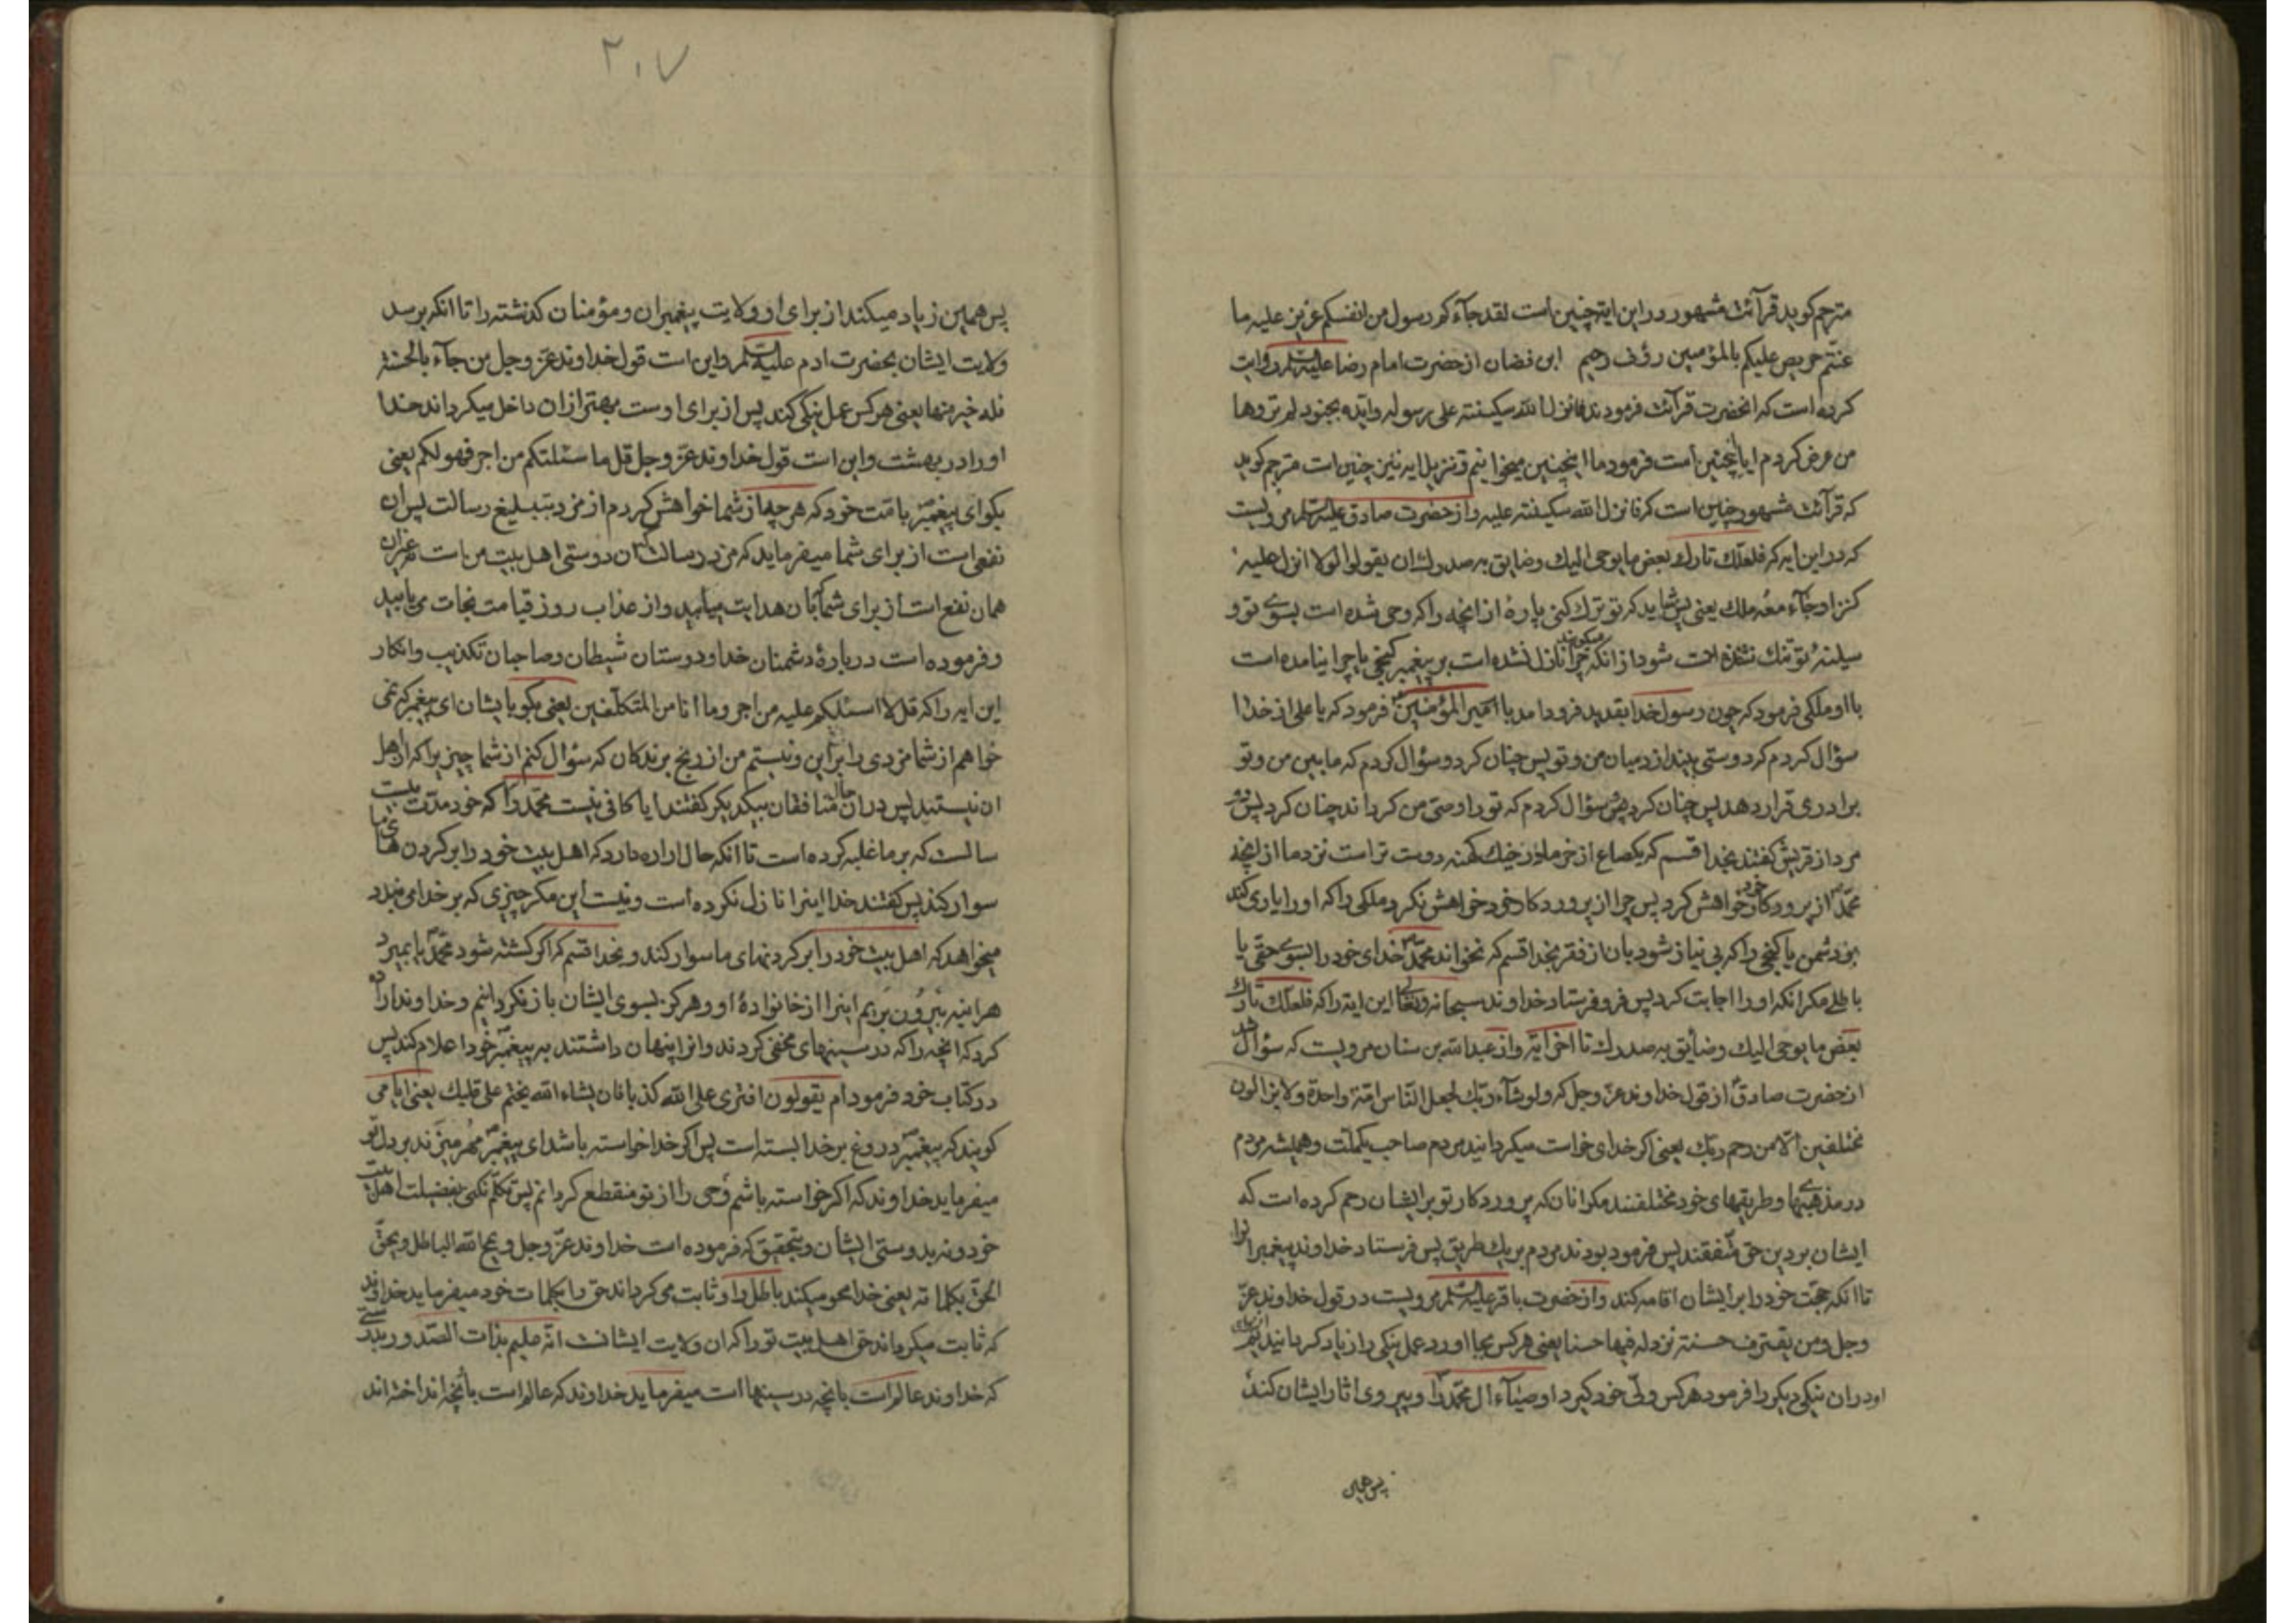 مترجم کوید قرآئت مشهور در این ایته چنین است لقد جآءکم رسول من انفسکم عزیز علیه ما
عنتم حریص علیکم بالمؤمنین رؤف رحیم ابن فضال از حضرت امام رضا علیه السلم روایت
کرده است که انحضرت قرآئت فرمودند فانزل الله سکینته علی رسوله وایده بجنود لم تروها
من عرض کردم ایا اینچنین است فرمود ما اینچنین میخوانیم و تنزیل ایه نیز چنین است مترجم کوید
که قرآئت مشهور چنین است که فانزل الله سکینته علیه و از حضرت صادق علیه السلم مرویست
که در این ایه که فلعلک تارک بعض ما یوحی الیک وضایق به صدرک ان یقولوا لولا انزل علیه
کنز او جآء معه ملک یعنی پس شاید که تو ترک کنی پارهٔ از انچه را که وحی شده است بسوے تو و
سینهٔ تو تنک شده است شود از انکه میکویند چرا نازل نشده است بر پیغمبر کنجی یا چرا نیامده است
با او ملکی فرمود که چون رسول خدا بقدید فرود امد با امیر المؤمنین فرمود که یا علی از خدا
سؤال کردم که دوستی بیندازد میان من و تو پس چنان کرد و سؤال کردم که مابین من و تو
برادری قرار دهد پس چنان کرد پس سؤال کردم که تو را وصی من کرداند چنان کرد پس دو
مرد از قریش کفتند بخدا قسم که یکصاع از خرما در خیک کهنه دوست تر است نزد ما از انچه
محمد از پروردکار خود خواهش کرد پس چرا از پروردکار خود خواهش نکرد ملکی را که او را یاری کند
بر دشمن یا کنجی را که بی نیاز شود بان از فقر بخدا قسم که نخواند محمد خدای خود را بسوے حقی یا
باطلے مکر انکه او را اجابت کرد پس فرو فرستاد خداوند سبحانه وتعالی این ایته را که فلعلک تارک
بعض ما یوحی الیک وضایق به صدرک تا اخر ایه و از عبدالله بن سنان مرویست که سؤال شد
از حضرت صادق از قول خداوند عز وجل که ولو شآء ربک لجعل الناس امة واحدة ولا یزالون
مختلفین الا من رحم ربک یعنی اکر خدای خواست میکردانید مردم صاحب یکملت و همیشه مردم
در مذهبها و طریقهای خود مختلفند مکر انان که پروردکار تو بر ایشان رحم کرده است که
ایشان بر دین حق متفقند پس فرمود بودند مردم بر یک طریق پس فرستاد خداوند پیغمبرانرا
تا انکه حجت خود را بر ایشان اقامه کند و از حضرت باقر علیه السلم مرویست در قول خداوند عز
وجل ومن یقترف حسنة نزد له فیها حسنا یعنی هر کس بجا اورد عمل نیکی را زیاد کردانیم از برای
او در ان نیکی دیکر را فرمود هر کس ولی خود کیرد اوصیآء ال محمد را و پیروی اثار ایشان کند
پس همین
۲۰۷
پس همین زیاد میکند از برای او ولایت پیغمبران و مؤمنان کذشته را تا انکه برسد
ولایت ایشان بحضرت ادم علیه السلم و این است قول خداوند عز وجل من جآء بالحسنة
فله خیر منها یعنی هر کس عمل نیکی کند پس از برای اوست بهتر از ان داخل میکرداند خدا
او را در بهشت و این است قول خداوند عز وجل قل ما سئلتکم من اجر فهو لکم یعنی
بکو ای پیغمبر بامت خود که هر چه از شما خواهش کردم از مزد بتبلیغ رسالت پس ان
نفعی است از برای شما میفرماید که مزد رسالت که ان دوستی اهل بیت من است
همان نفع است از برای شما بان هدایت میابید و از عذاب روز قیامت نجات می یابید
و فرموده است در بارهٔ دشمنان خدا و دوستان شیطان و صاحبان تکذیب و انکار
این ایه را که قل لا اسئلکم علیه من اجر وما انا من المتکلفین یعنی بکو بایشان ای پیغمبر که نمی
خواهم از شما مزدی را بر این و نیستم من از رنج برندکان که سؤال کنم از شما چیزیرا که از اهل
ان نیستید پس در ان حال منافقان بیکدیکر کفتند ایا کافی نیست محمد را که خود مدت بیست
سالست که بر ما غلبه کرده است تا انکه حال اراده دارد که اهل بیت خود را بر کردن های ما
سوار کند پس کفتند خدا اینرا نازل نکرده است و نیست این مکر چیزی که بر خدا می بندد
میخواهد که اهل بیت خود را بر کردنهای ما سوار کند و بخدا قسم که اکر کشته شود محمد یا بمیرد
هر اینه بیرون بریم اینرا از خانوادهٔ او و هرکز بسوی ایشان باز نکردانیم و خداوند اراده
کرد که انچه را که در سینهای مخفی کردند و انرا پنهان داشتند به پیغمبر خود اعلام کند پس
در کتاب خود فرمود ام یقولون افتری علی الله کذبا فان یشاء الله یختم علی قلبک یعنی ایا می
کویند که پیغمبر دروغ بر خدا بسته است پس اکر خدا خواسته باشد ای پیغمبر مهر میزند بر دل تو
میفرماید خداوند که اکر خواسته باشم وحی را از تو منقطع کردانم پس تکلم نکنی بفضیلت اهل بیت
خود و نه بدوستی ایشان و بتحقیق که فرموده است خداوند عز وجل ویمح الله الباطل ویحق
الحق بکلماته یعنی خدا محو میکند باطل را و ثابت می کرداند حق را بکلمات خود میفرماید خداوند
که ثابت میکرداند حق اهل بیت تو را که ان ولایت ایشانست انه علیم بذات الصدور
که خداوند عالم است بانچه در سینها است میفرماید خداوند که عالم است بانچه انداخته اند